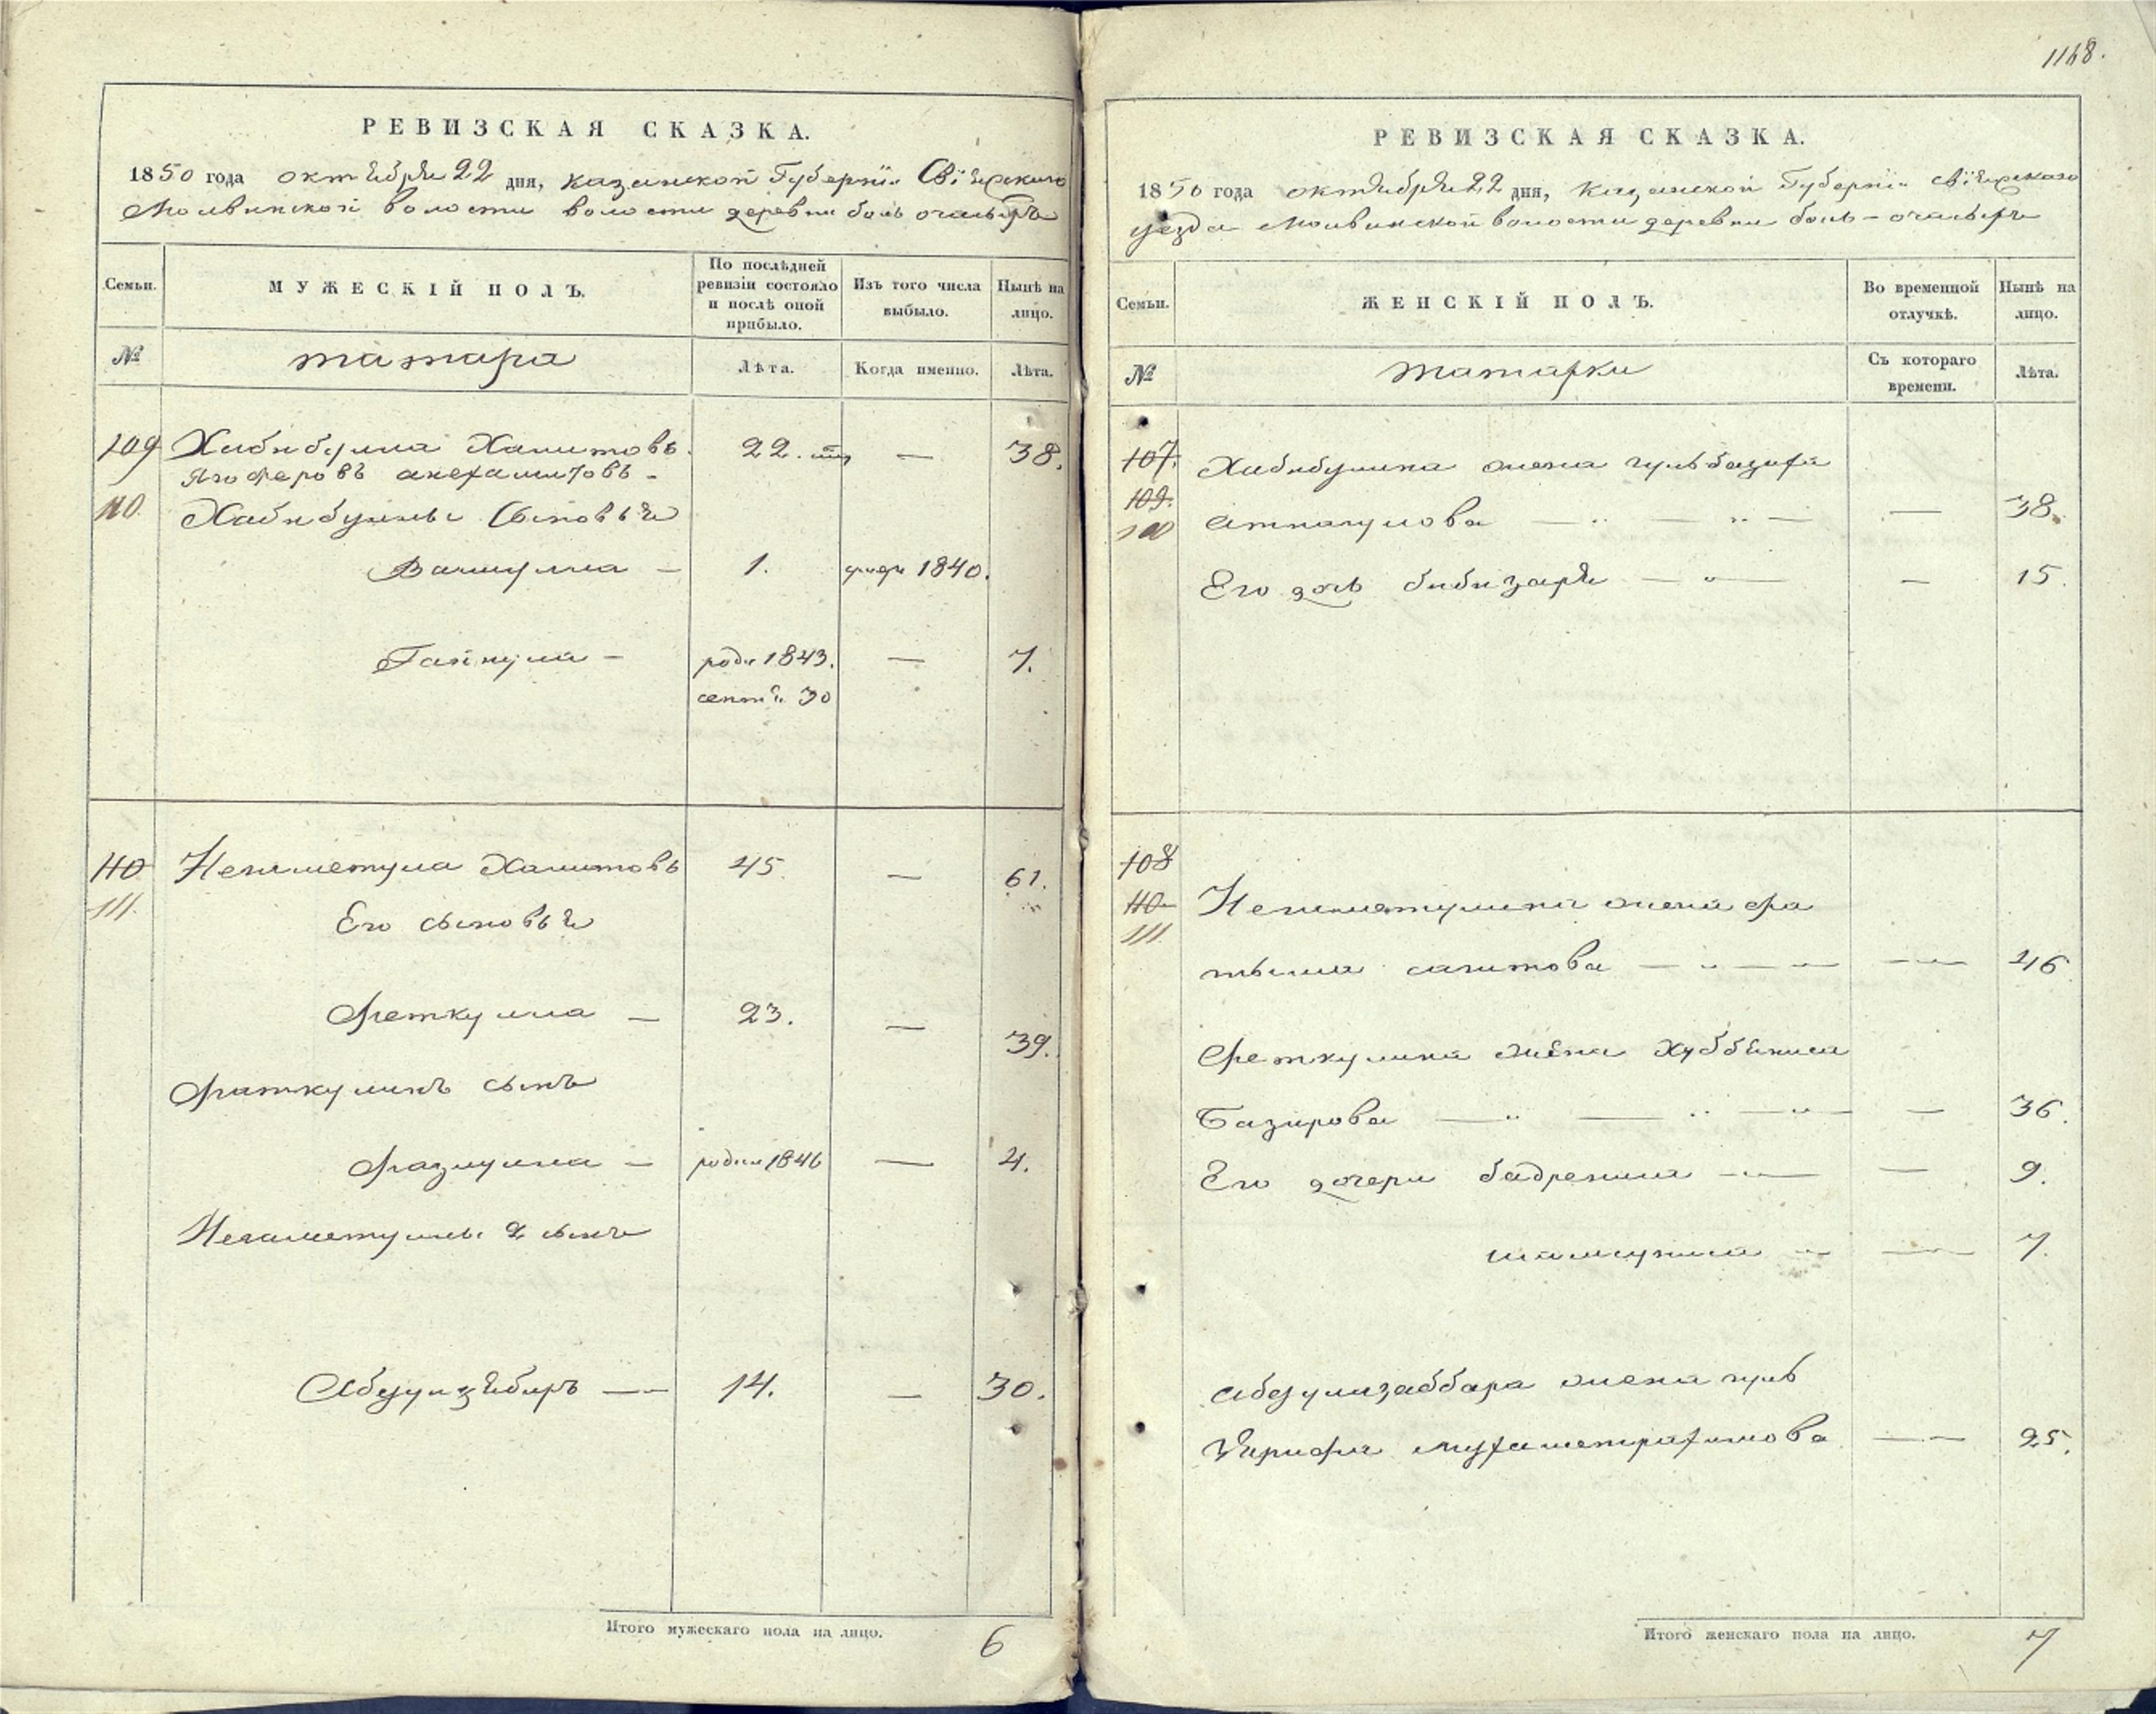 РЕВИЗСКАЯ СКАЗКА.
1850 года октября 22 дня, казанской Губерніи Свіяжскаго
Молвинской волости волости деревни боль очасыръ
Семьи.
МУЖЕСКІЙ ПОЛЪ.
По послѣдней ревизіи состояло и послѣ оной прибыло.
Изъ того числа выбыло.
Нынѣ на лицо.
№
татара
Лѣта.
Когда именно.
Лѣта.
109 Хабибулла Хамитовъ. 22. — 38.
110. Хабибуллы Сыновья
Валиулла — 1. 1840.
Гайнулла — роди 1843. — 7.
сентя. 30
110 Негаметулла Хамитовъ 45. — 61.
111. Его сыновья
Феткулла — 23. — 39.
Фаткулинъ сынъ
Фазлулла — родил 1846 — 4.
Негаметуллы 2 сынъ
Абдулзябиръ — 14. — 30.
Итого мужескаго пола на лицо. 6
1168.
РЕВИЗСКАЯ СКАЗКА.
1850 года октября 22 дня, казанской Губерніи Свіяжскаго
уезда Молвинской волости деревни боль-очасыръ
Семьи.
ЖЕНСКІЙ ПОЛЪ.
Во временной отлучкѣ.
Нынѣ на лицо.
№
татарки
Съ котораго времени.
Лѣта.
107. Хабибулина жена гульбазиря
109.
110 Аткагулова — — 38.
Его дочь бибизаря — — 15.
108
110 Негаметулина жена фа
111
тыма сагитова — — 46
Феткулина жена Хуббениса
Базирова — — 36.
Его дочери бадрениса — — 9.
шамсуниса — — 7.
Абдулзаббара жена гуль
Зярифа мухаметрахимова — 25.
Итого женскаго пола на лицо. 7